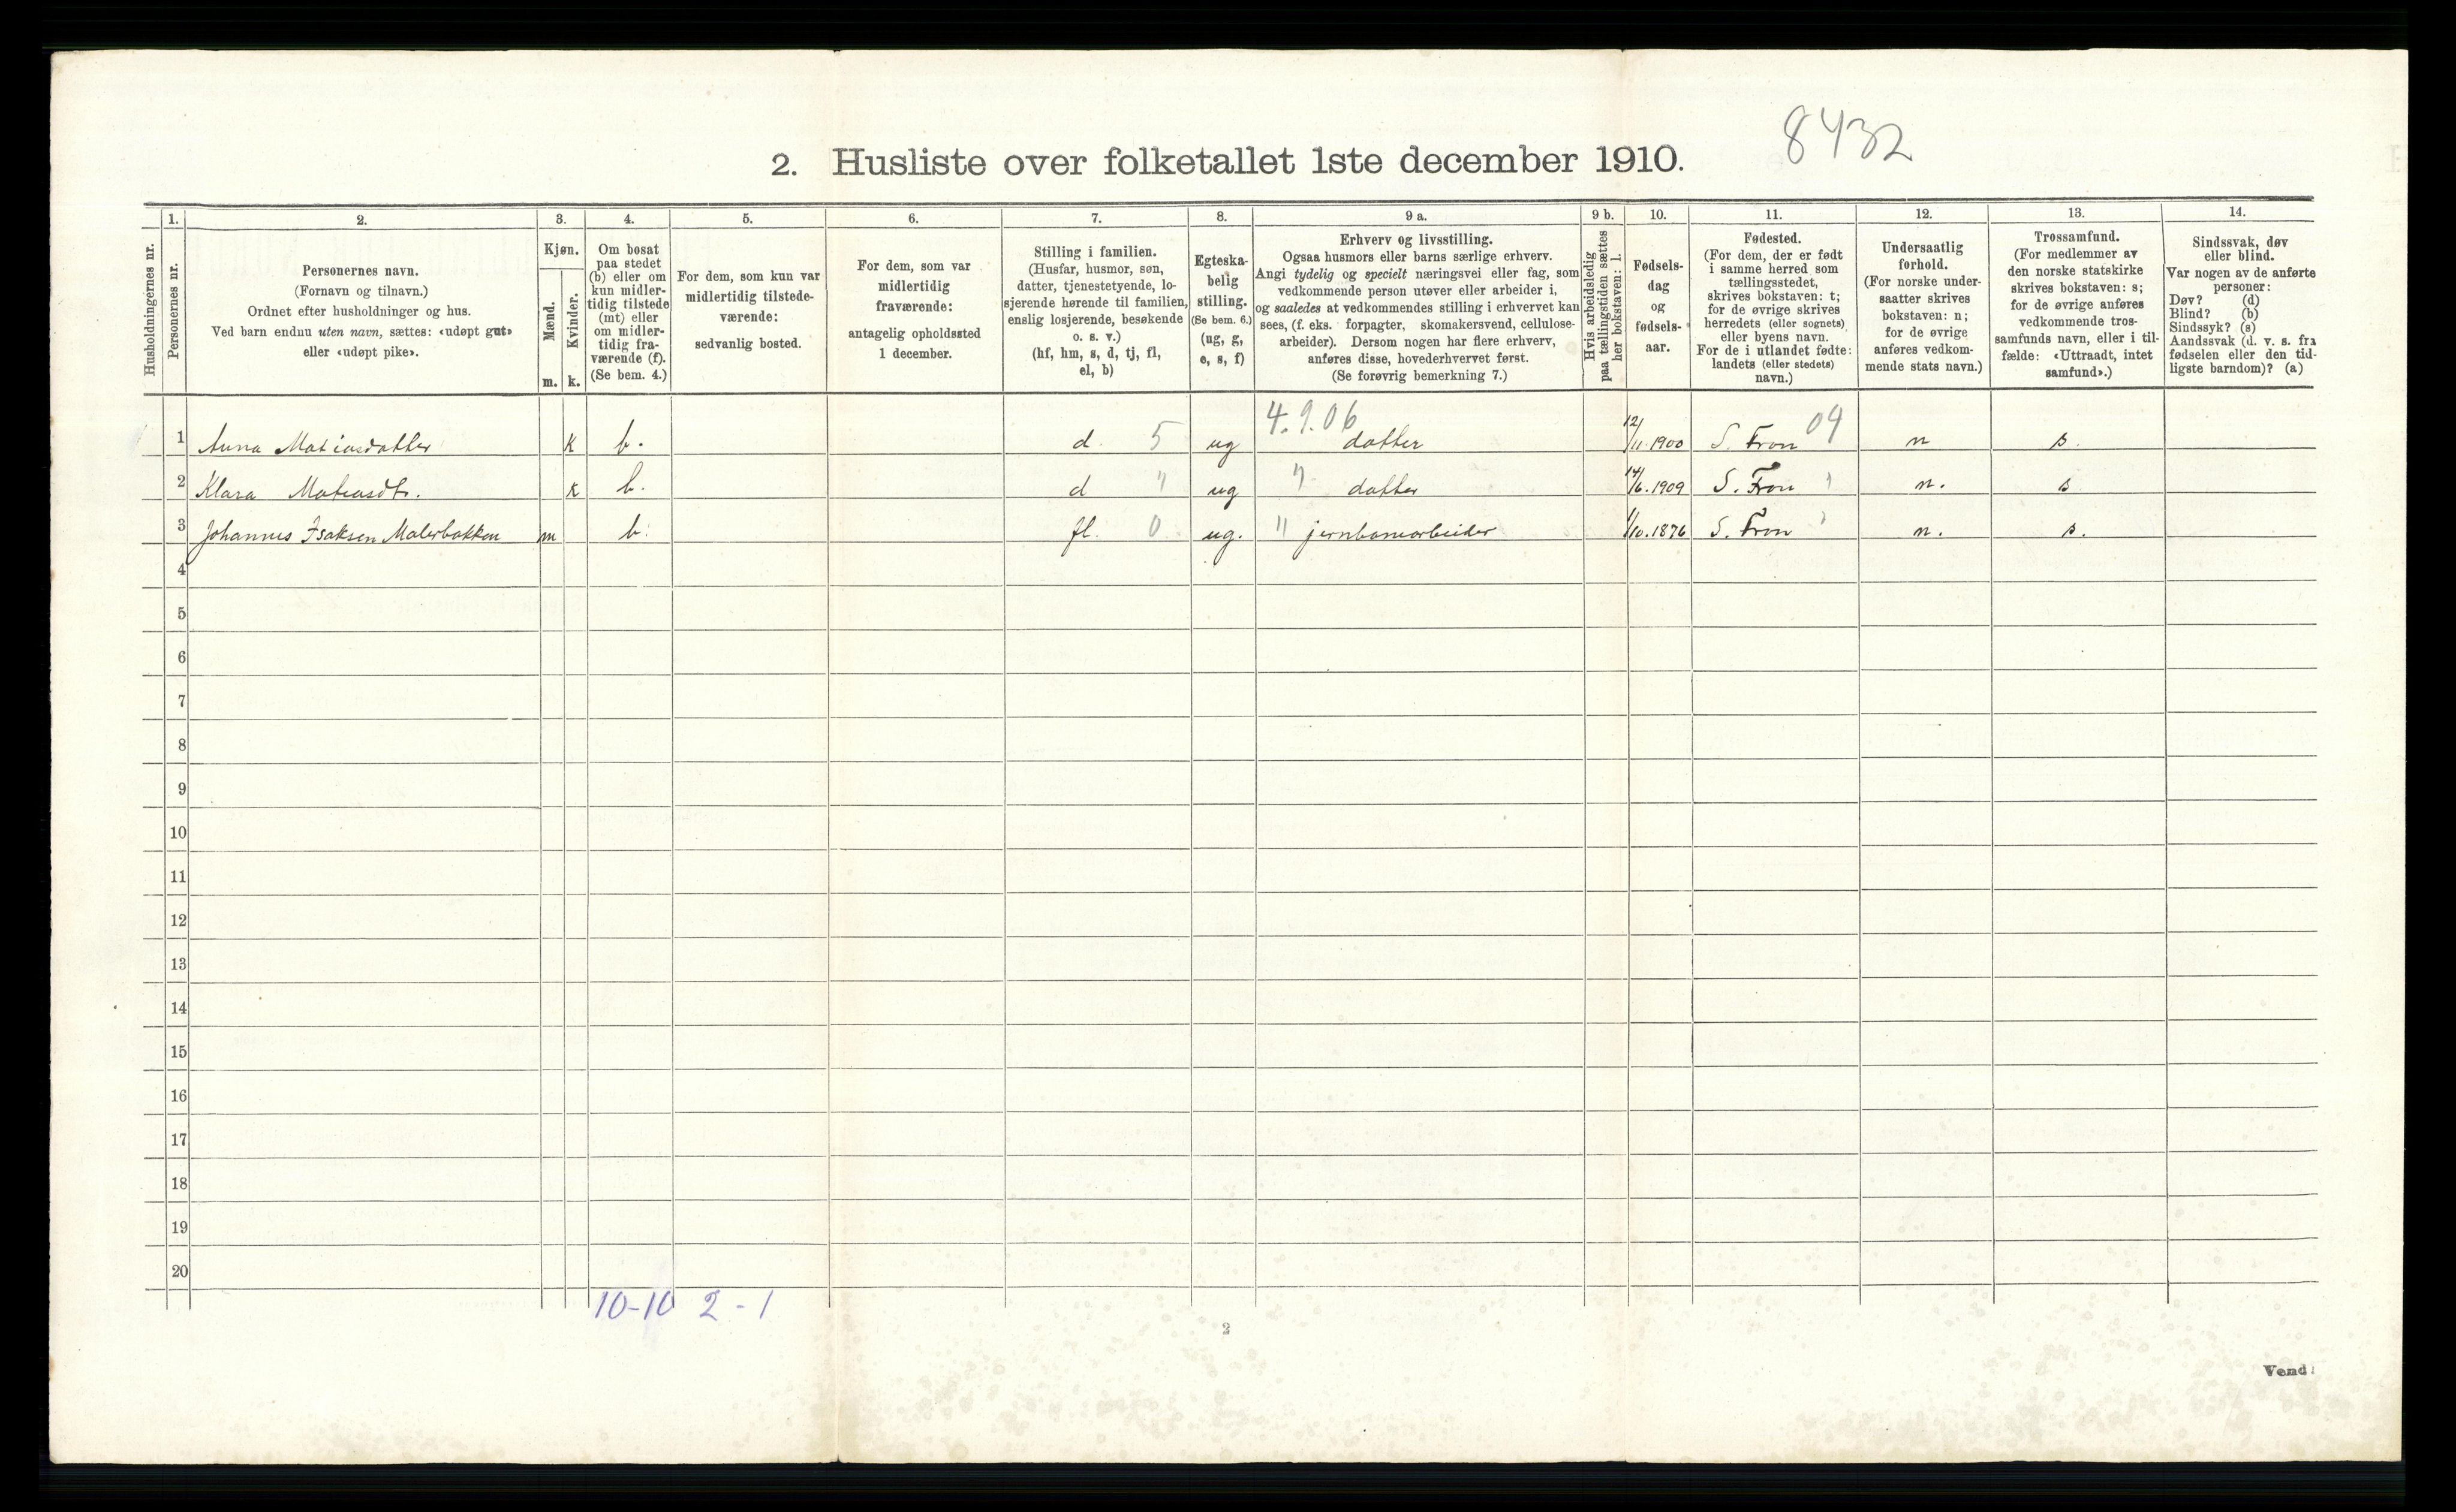 8432
2. Husliste over folketallet 1ste december 1910.
1. 2. 3. 4. 5. 6. 7. 8. 9 a. 9 b. 10. 11. 12. 13. 14.
Husholdningernes nr.
Personernes nr.
Personernes navn.
(Fornavn og tilnavn.)
Ordnet efter husholdninger og hus.
Ved barn endnu uten navn, sættes: «udøpt gut»
eller «udøpt pike».
Kjøn.
Mænd.
Kvinder.
m. k.
Om bosat
paa stedet
(b) eller om
kun midler-
tidig tilstede
(mt) eller
om midler-
tidig fra-
værende (f).
(Se bem. 4.)
For dem, som kun var
midlertidig tilstede-
værende:
sedvanlig bosted.
For dem, som var
midlertidig
fraværende:
antagelig opholdssted
1 december.
Stilling i familien.
(Husfar, husmor, søn,
datter, tjenestetyende, lo-
sjerende hørende til familien,
enslig losjerende, besøkende
o. s. v.)
(hf, hm, s, d, tj, fl,
el, b)
Egteska-
belig
stilling.
(Se bem. 6.)
(ug, g,
e, s, f)
Erhverv og livsstilling.
Ogsaa husmors eller barns særlige erhverv.
Angi tydelig og specielt næringsvei eller fag, som
vedkommende person utøver eller arbeider i,
og saaledes at vedkommendes stilling i erhvervet kan
sees, (f. eks. forpagter, skomakersvend, cellulose-
arbeider). Dersom nogen har flere erhverv,
anføres disse, hovederhvervet først.
(Se forøvrig bemerkning 7.)
Hvis arbeidsledig
paa tællingstiden sættes
her bokstaven: l.
Fødsels-
dag
og
fødsels-
aar.
Fødested.
(For dem, der er født
i samme herred som
tællingsstedet,
skrives bokstaven: t;
for de øvrige skrives
herredets (eller sognets)
eller byens navn.
For de i utlandet fødte:
landets (eller stedets)
navn.)
Undersaatlig
forhold.
(For norske under-
saatter skrives
bokstaven: n;
for de øvrige
anføres vedkom-
mende stats navn.)
Trossamfund.
(For medlemmer av
den norske statskirke
skrives bokstaven: s;
for de øvrige anføres
vedkommende tros-
samfunds navn, eller i til-
fælde: «Uttraadt, intet
samfund».)
Sindssvak, døv
eller blind.
Var nogen av de anførte
personer:
Døv? (d)
Blind? (b)
Sindssyk? (s)
Aandssvak (d. v. s. fra
fødselen eller den tid-
ligste barndom)? (a)
4.9.06 04
1 Anna Matiasdatter k b. d. 5 ug datter 12/11.1900 S. Fron n s.
2 Klara Matiasdt. k b. d " ug " datter 14/6.1909 S. Fron " n. s
3 Johannes Isaksen Malerbakken m b. fl. 0 ug. " jernbanearbeider 1/10.1876 S. Fron " n. s.
4
5
6
7
8
9
10
11
12
13
14
15
16
17
18
19
20
10-10 2-1
2
Vend!